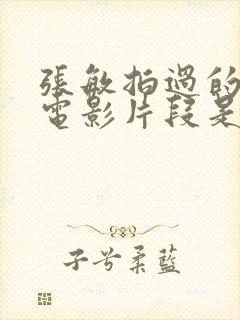 張敏拍過的
電影片段是
子兮柔藍